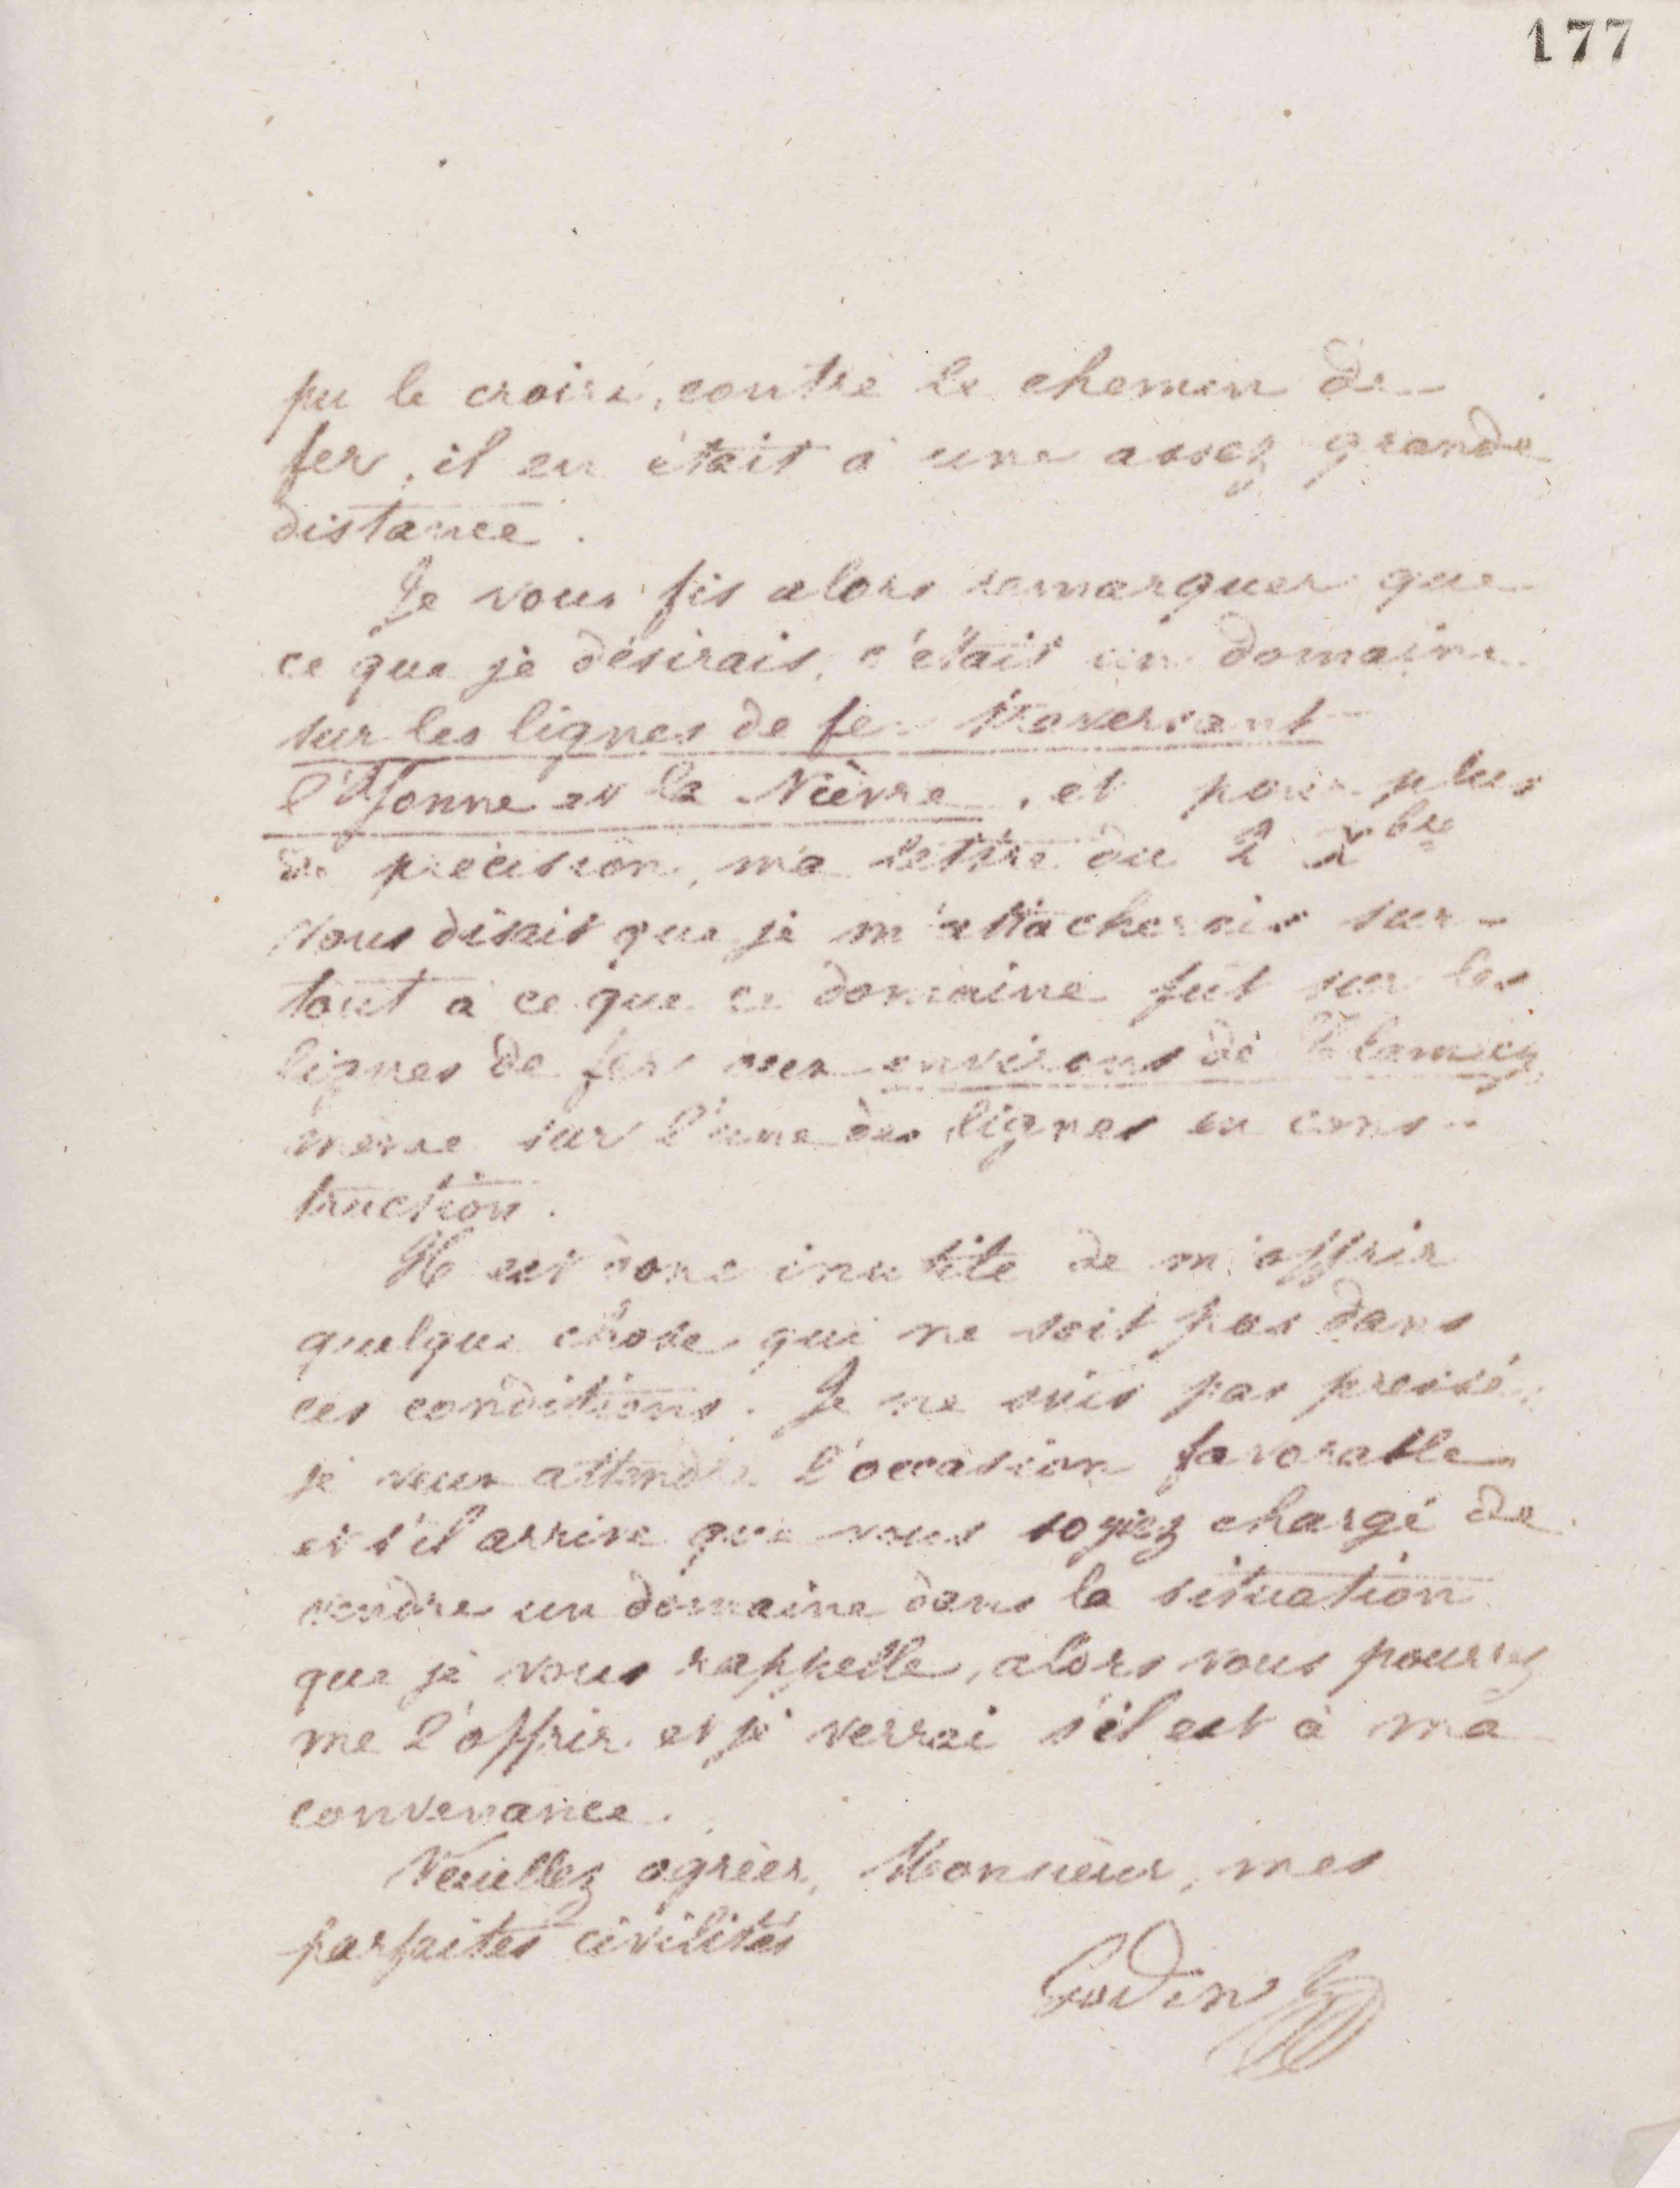 177
pu le croire, contre le chemin de
fer, il en était à une assez grande
distance.
Je vous fis alors remarquer que
ce que je désirais, c'était un domaine
sur les lignes de fer traversant
l'Yonne et la Nièvre, et pour plus
de précision, ma lettre du 2 Xbre
vous disait que je m'attacherais sur-
tout à ce que ce domaine fut sur les
lignes de fer aux environs de Clamecy
même sur l'une des lignes en cons-
truction.
Il est donc inutile de m'offrir
quelque chose qui ne soit pas dans
ces conditions. Je ne suis pas pressé,
je veux attendre l'occasion favorable
et s'il arrive que vous soyiez chargé de
vendre un domaine dans la situation
que je vous rappelle, alors vous pourrez
me l'offrir et je verrai s'il est à ma
convenance.
Veuillez agréer, Monsieur, mes
parfaites civilités
Godin